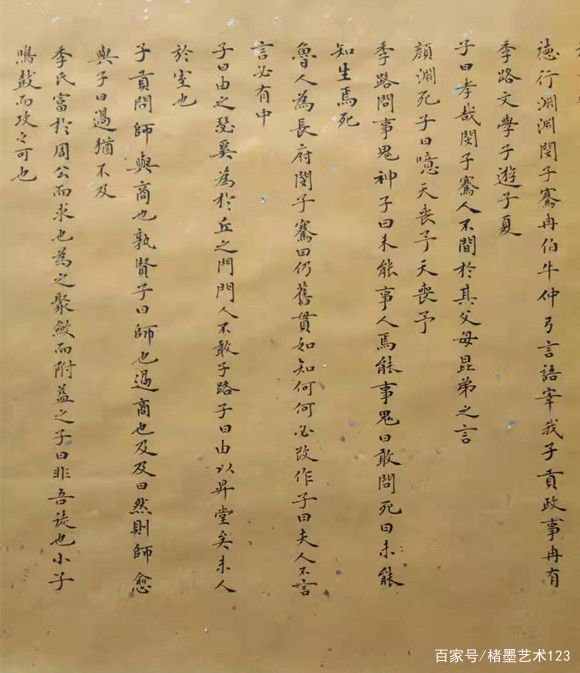 德行淵淵閔子騫冉伯牛仲弓言語宰我子貢政事冉有
季路文學子遊子夏
子曰孝哉閔子騫人不間於其父母昆弟之言
顏淵死子曰噫天喪予天喪予
季路問事鬼神子曰未能事人焉能事鬼曰敢問死曰未能
知生焉死
魯人為長府閔子騫曰仍舊貫如知何何必改作子曰夫人不言
言必有中
子曰由之瑟奚為於丘之門門人不敢子路子曰由以昇堂矣未人
於室也
子貢問師與商也孰賢子曰師也過商也及及曰然則師愈
與子曰過猶不及
季氏富於周公而求也為之聚斂而附益之子曰非吾徒也小子
鳴鼓而攻之可也
百家号/楮墨艺术123